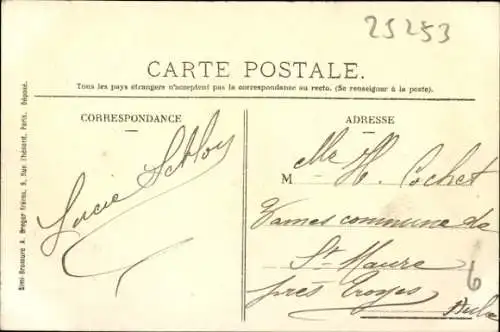 25253
CARTE POSTALE.
Tous les pays étrangers n'acceptent pas la correspondance au recto. (Se renseigner à la poste).
CORRESPONDANCE
ADRESSE
Lucie
Mlle H. Cochet
M
commune de
St Maure
près Troyes
6
Aube
Simi-Bromure A. Breger frères, 9, Rue Thénard, Paris. Déposé.